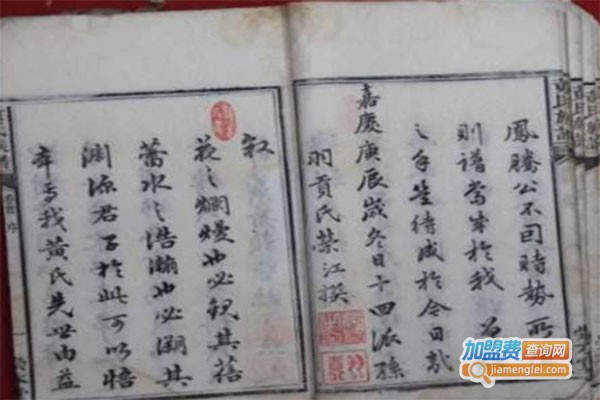 鳳騰公不回時勢所
則譜當成於我
之手豈待成於今日哉
嘉慶庚辰歲冬日十四派孫
羽貢氏榮江撰
叙
花之爛熳也必観其蓓
蓄水之浩瀚也必溯其
淵源君子於此可以悟
本焉我黃氏先世由益
加盟费查询网
jiamengfei.com